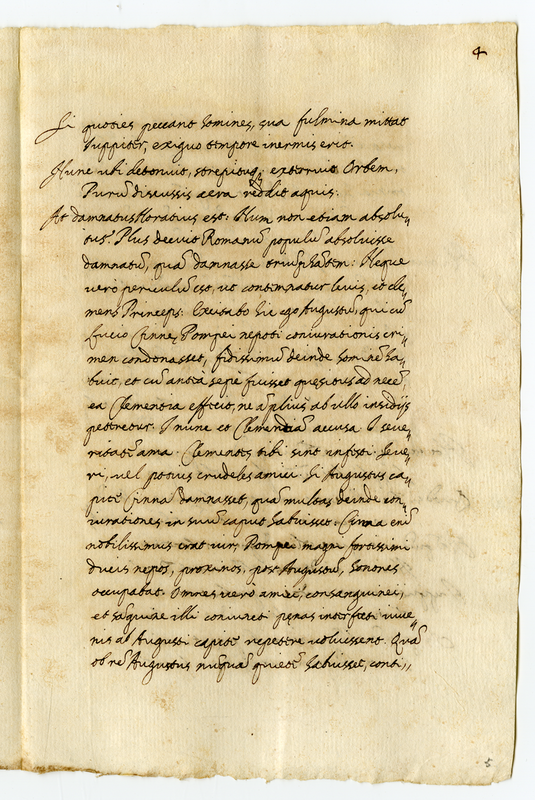 4
Si quoties peccant homines, sua fulmina mittat
Iuppiter, exiguo tempore inermis erit.
Hunc ubi detonuit, strepituq; exterruit Orbem,
Purũ discussis aera reddit aquis.
At damnatus Horatius est: Num non etiam absolu„
tus. Plus decuit Romanũ populũ absoluisse
damnatũ, quã damnasse triũphãtem: Neque
vero periculũ est, ut contemnatur lenis, et cle„
mens Princeps. Excitabo hic ego Augustũ, qui cũ
Lucio Cinnę, Pompei nepoti coniurationis cri„
men condonasset, fidissimũ deinde hominẽ ha„
buit, et cũ antea sępe fuisset quesitus ad necẽ,
ea Clementia effecit, ne ãplius ab ullo insidijs
petteretur. I nunc et Clementiã accusa. I seue„
ritatẽ ama. Clementes tibi sint infesti. Seue„
ri, uel potius crudeles amici. Si Augustus ca„
pite Cinnã damnasset, quã multas deinde con„
iurationes in suũ caput habuisset. Cinna enĩ
nobilissimus erat uir, Pompei magni fortissimi
ducis nepos, proximos, post Augustũ, honores
occupabat. Omnes uero amici, consanguinei,
et sãguine illi coniuncti pęnas interfecti iuue„
nis ab Augusti capite repetere uoluissent. Quã
ob rẽ Augustus nũquã quietẽ habuisset, conti„
5